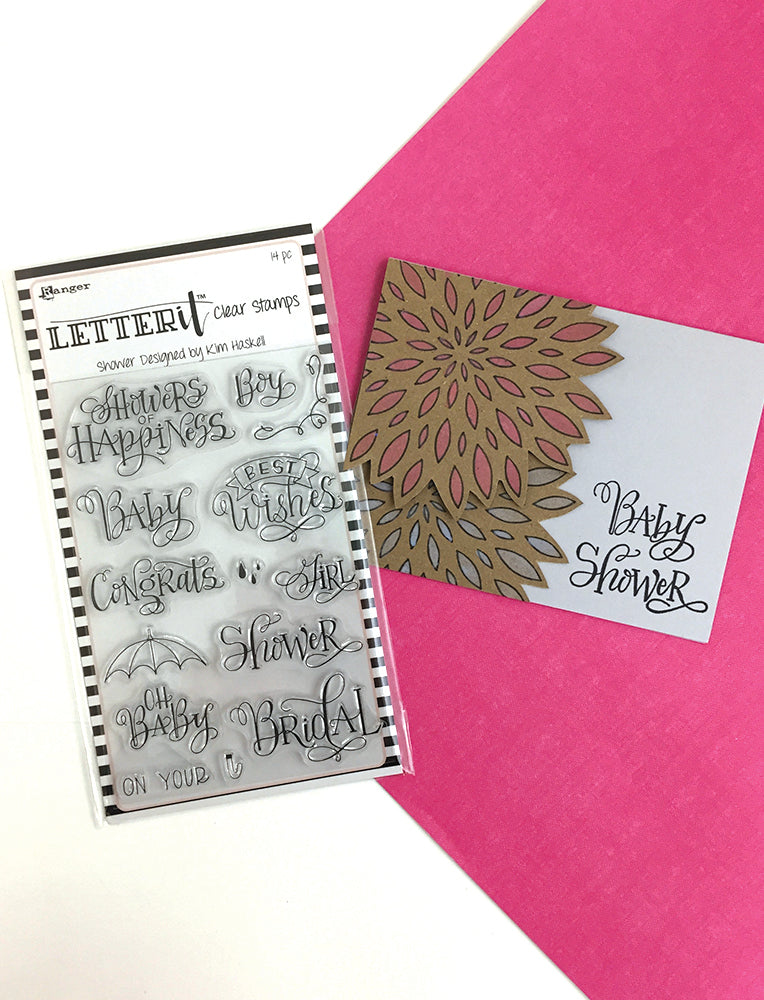 14 pc
Ranger
LETTERit™ Clear Stamps
Shower Designed by Kim Haskell
SHOWERS
OF
HAPPINESS
Boy
BABY
BEST
WISHES
CONGRATS
GIRL
SHOWER
OH
BABY
BRIDAL
ON YOUR
BABY
SHOWER